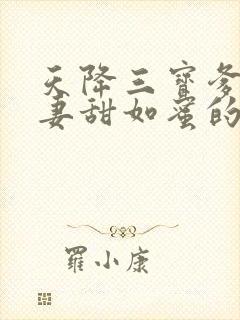 天降三寶爹
妻甜如蜜的
羅小康